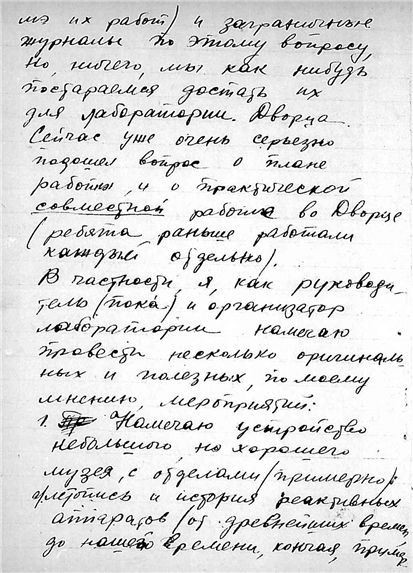 из их работ) и заграничные
журналы по этому вопросу,
но, ничего, мы как нибудь
постараемся достать их
для лаборатории. Дворца.
Сейчас уже очень серьезно
подошел вопрос о плане
работы, и о практической
совместной работе во Дворце
(ребята раньше работали
каждый отдельно).
В частности, я, как руководи-
тель (пока) и организатор
лаборатории намечаю
провести несколько оригиналь-
ных и полезных, по моему
мнению, мероприятий:
1. Намечаю устройство
небольшого, но хорошего
музея, с отделами (примерно):
а) летопись и история реактивных
аппаратов (от древнейших времен
до нашего времени, кончая, пример